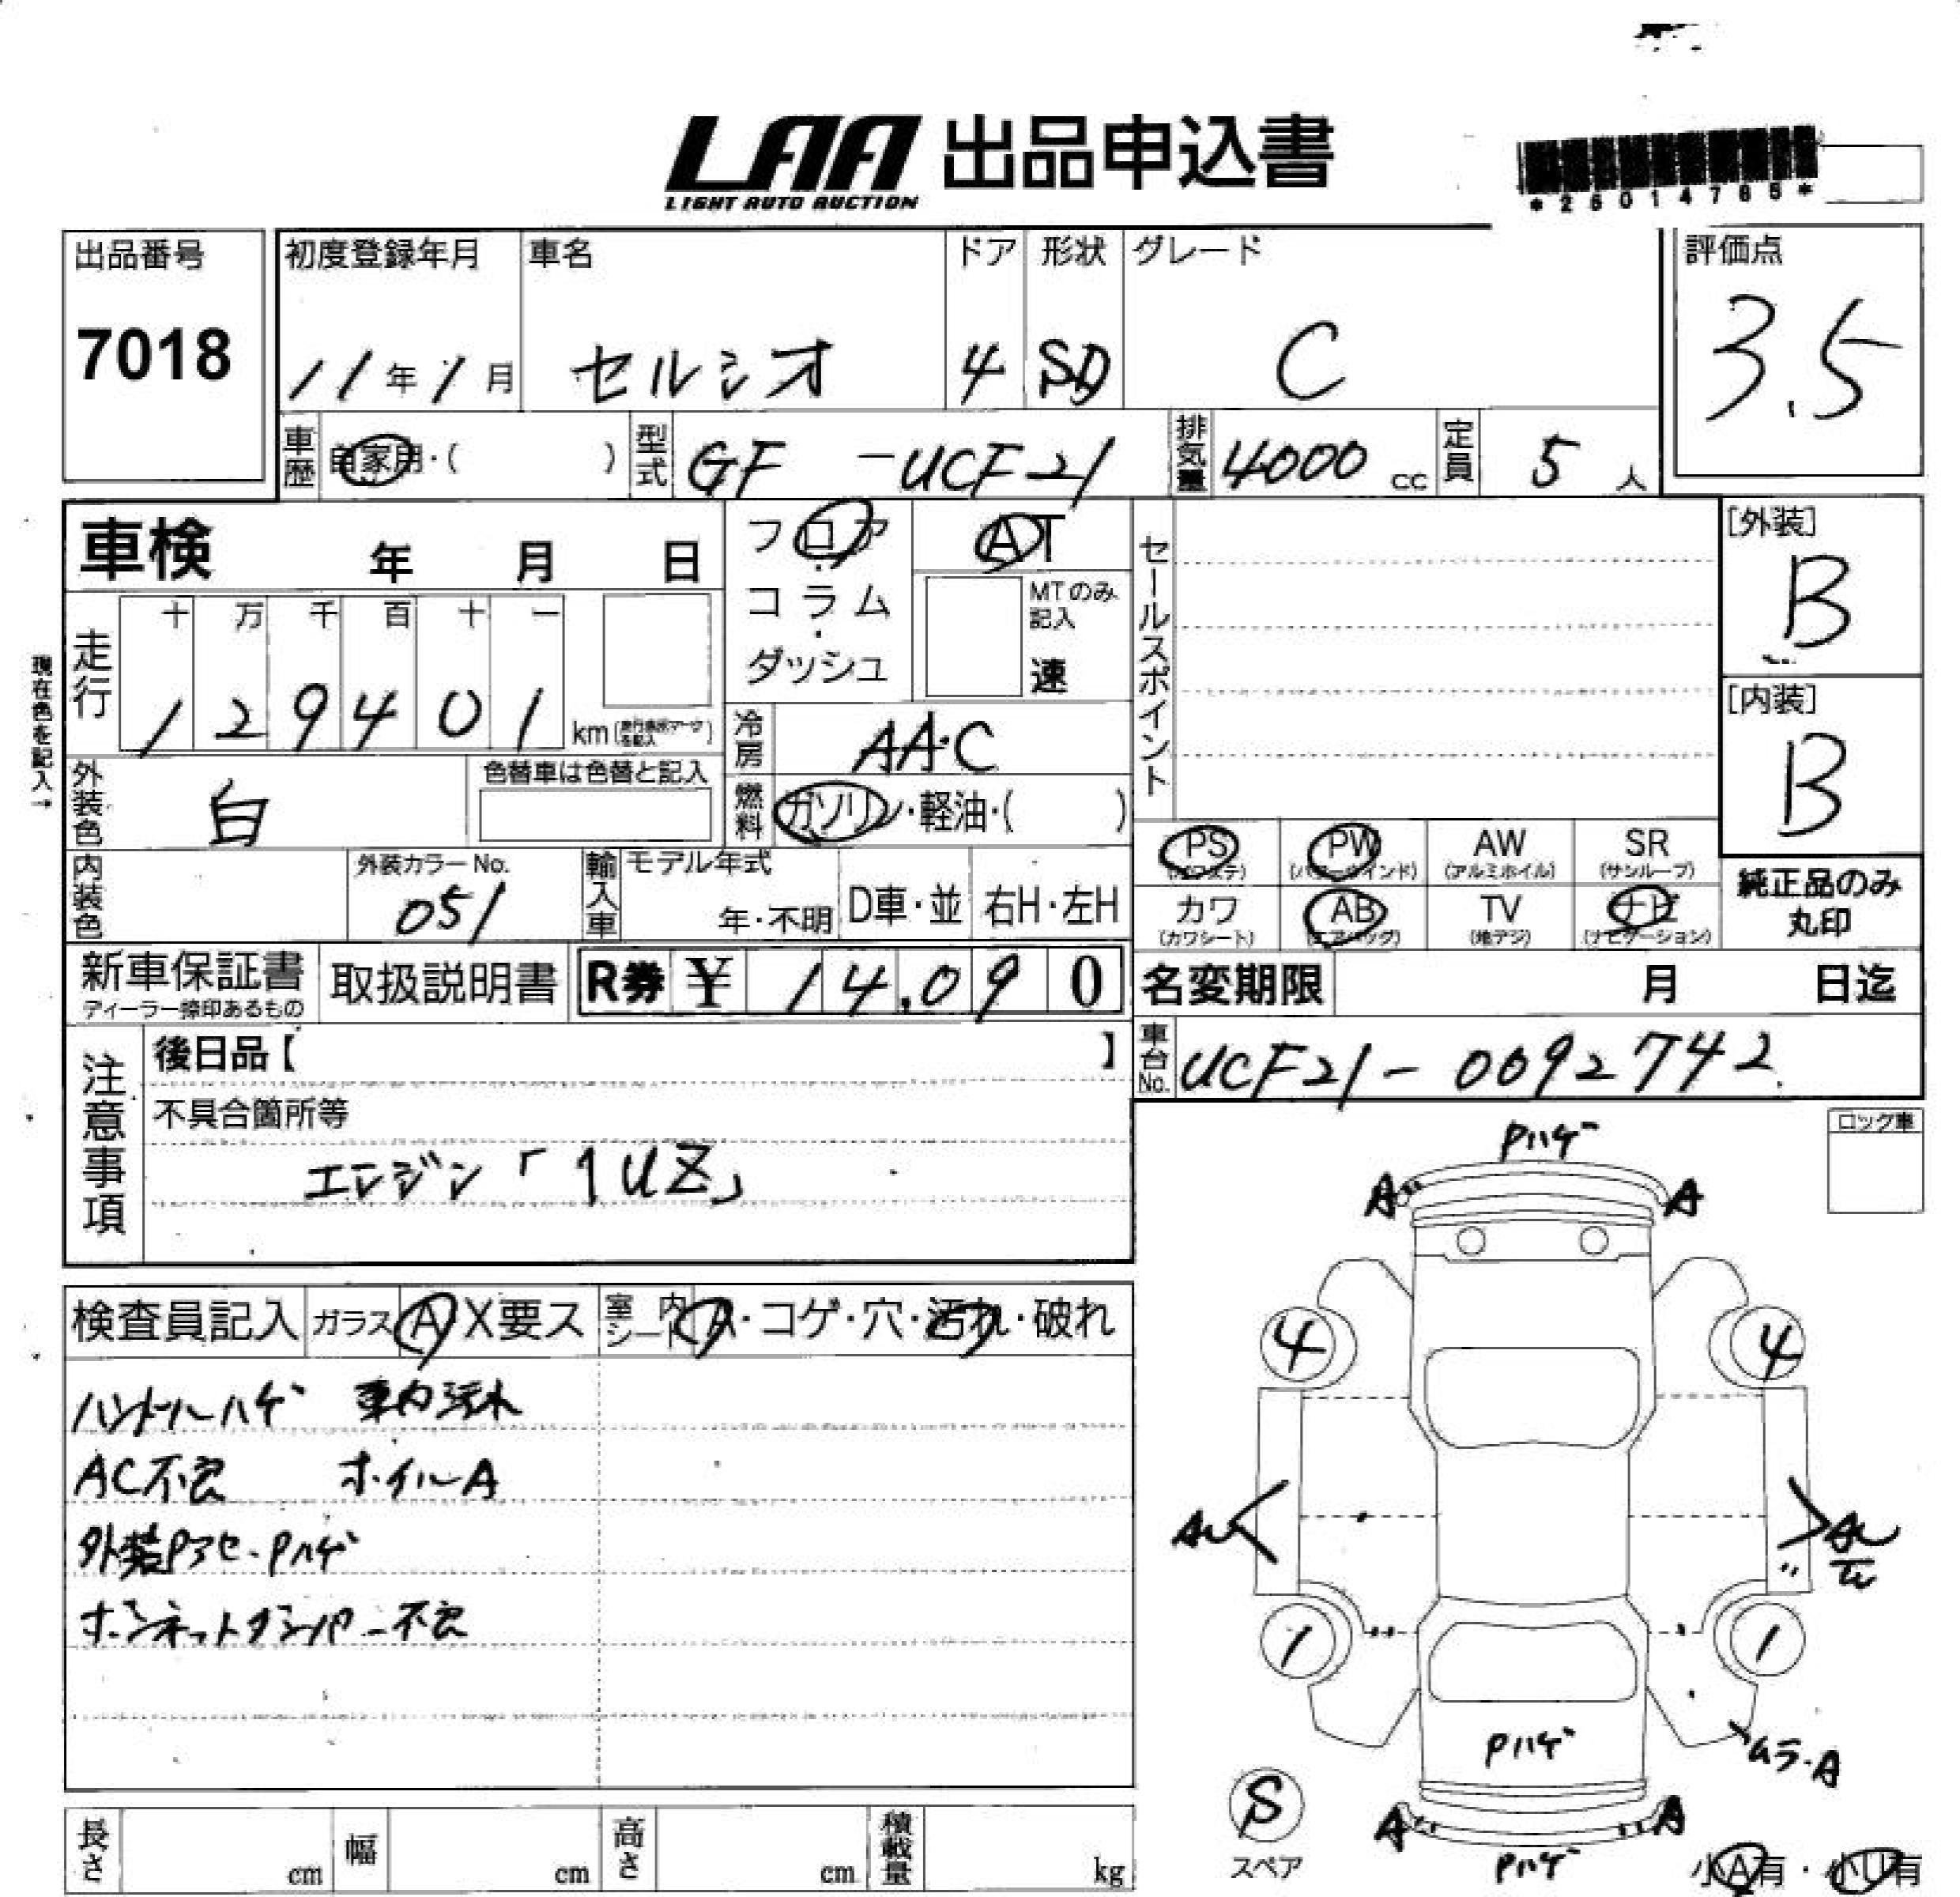 LAA 出品申込書
LIGHT AUTO AUCTION
出品番号
7018
初度登録年月
11年1月
車名
セルシオ
ドア
4
形状
SD
グレード
C
評価点
3.5
車歴
自家用・( )
型式
GF -UCF21
排気量
4000 cc
定員
5 人
車検 年 月 日
フロア
コラム
・
ダッシュ
AT
MTのみ
記入
速
セールスポイント
[外装]
B
[内装]
B
現在色を記入→
走行
十 万 千 百 十 一
1 2 9 4 0 1 km
冷房
AAC
外装色
白
色替車は色替と記入
燃料
ガソリン・軽油・( )
内装色
外装カラーNo.
051
輸入車
モデル年式
年・不明
D車・並
右H・左H
PS
(パワステ)
PW
(パワーウインド)
AW
(アルミホイル)
SR
(サンルーフ)
カワ
(カワシート)
AB
(エアバッグ)
TV
(地デジ)
ナビ
(ナビゲーション)
純正品のみ
丸印
新車保証書
ディーラー捺印あるもの
取扱説明書
R券 ¥ 14,090
名変期限 月 日迄
注意事項
後日品【 】
車台No.
UCF21-0092742
不具合箇所等
エンジン「1UZ」
ロック車
検査員記入
ガラス A X要ス
室内シート A・コゲ・穴・汚れ・破れ
ハンドルハゲ 車内汚れ
AC不良 ホイルA
外装Pアセ・Pハゲ
ボンネットダンパー不良
Pハゲ
A A
4 4
AU
1 1
Pハゲ
ムラ・A
S
スペア
A A
Pハゲ
小A有・小U有
長さ cm
幅 cm
高さ cm
積載量 kg